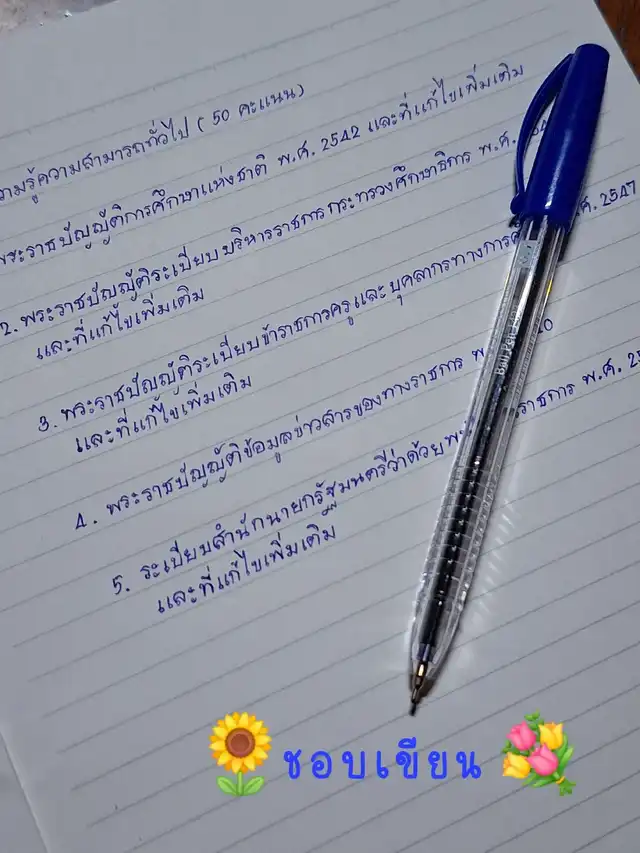 ความรู้ความสามารถทั่วไป ( 50 คะแนน)
พระราชบัญญัติการศึกษาแห่งชาติ พ.ศ. 2542 และที่แก้ไขเพิ่มเติม
2. พระราชบัญญัติระเบียบบริหารราชการกระทรวงศึกษาธิการ พ.ศ.
และที่แก้ไขเพิ่มเติม
3. พระราชบัญญัติระเบียบข้าราชการครูและบุคลากรทางการ 2547
และที่แก้ไขเพิ่มเติม
4. พระราชบัญญัติข้อมูลข่าวสารของทางราชการ
5. ระเบียบสำนักนายกรัฐมนตรีว่าด้วย พ.ศ.
และที่แก้ไขเพิ่มเติม
ชอบเขียน